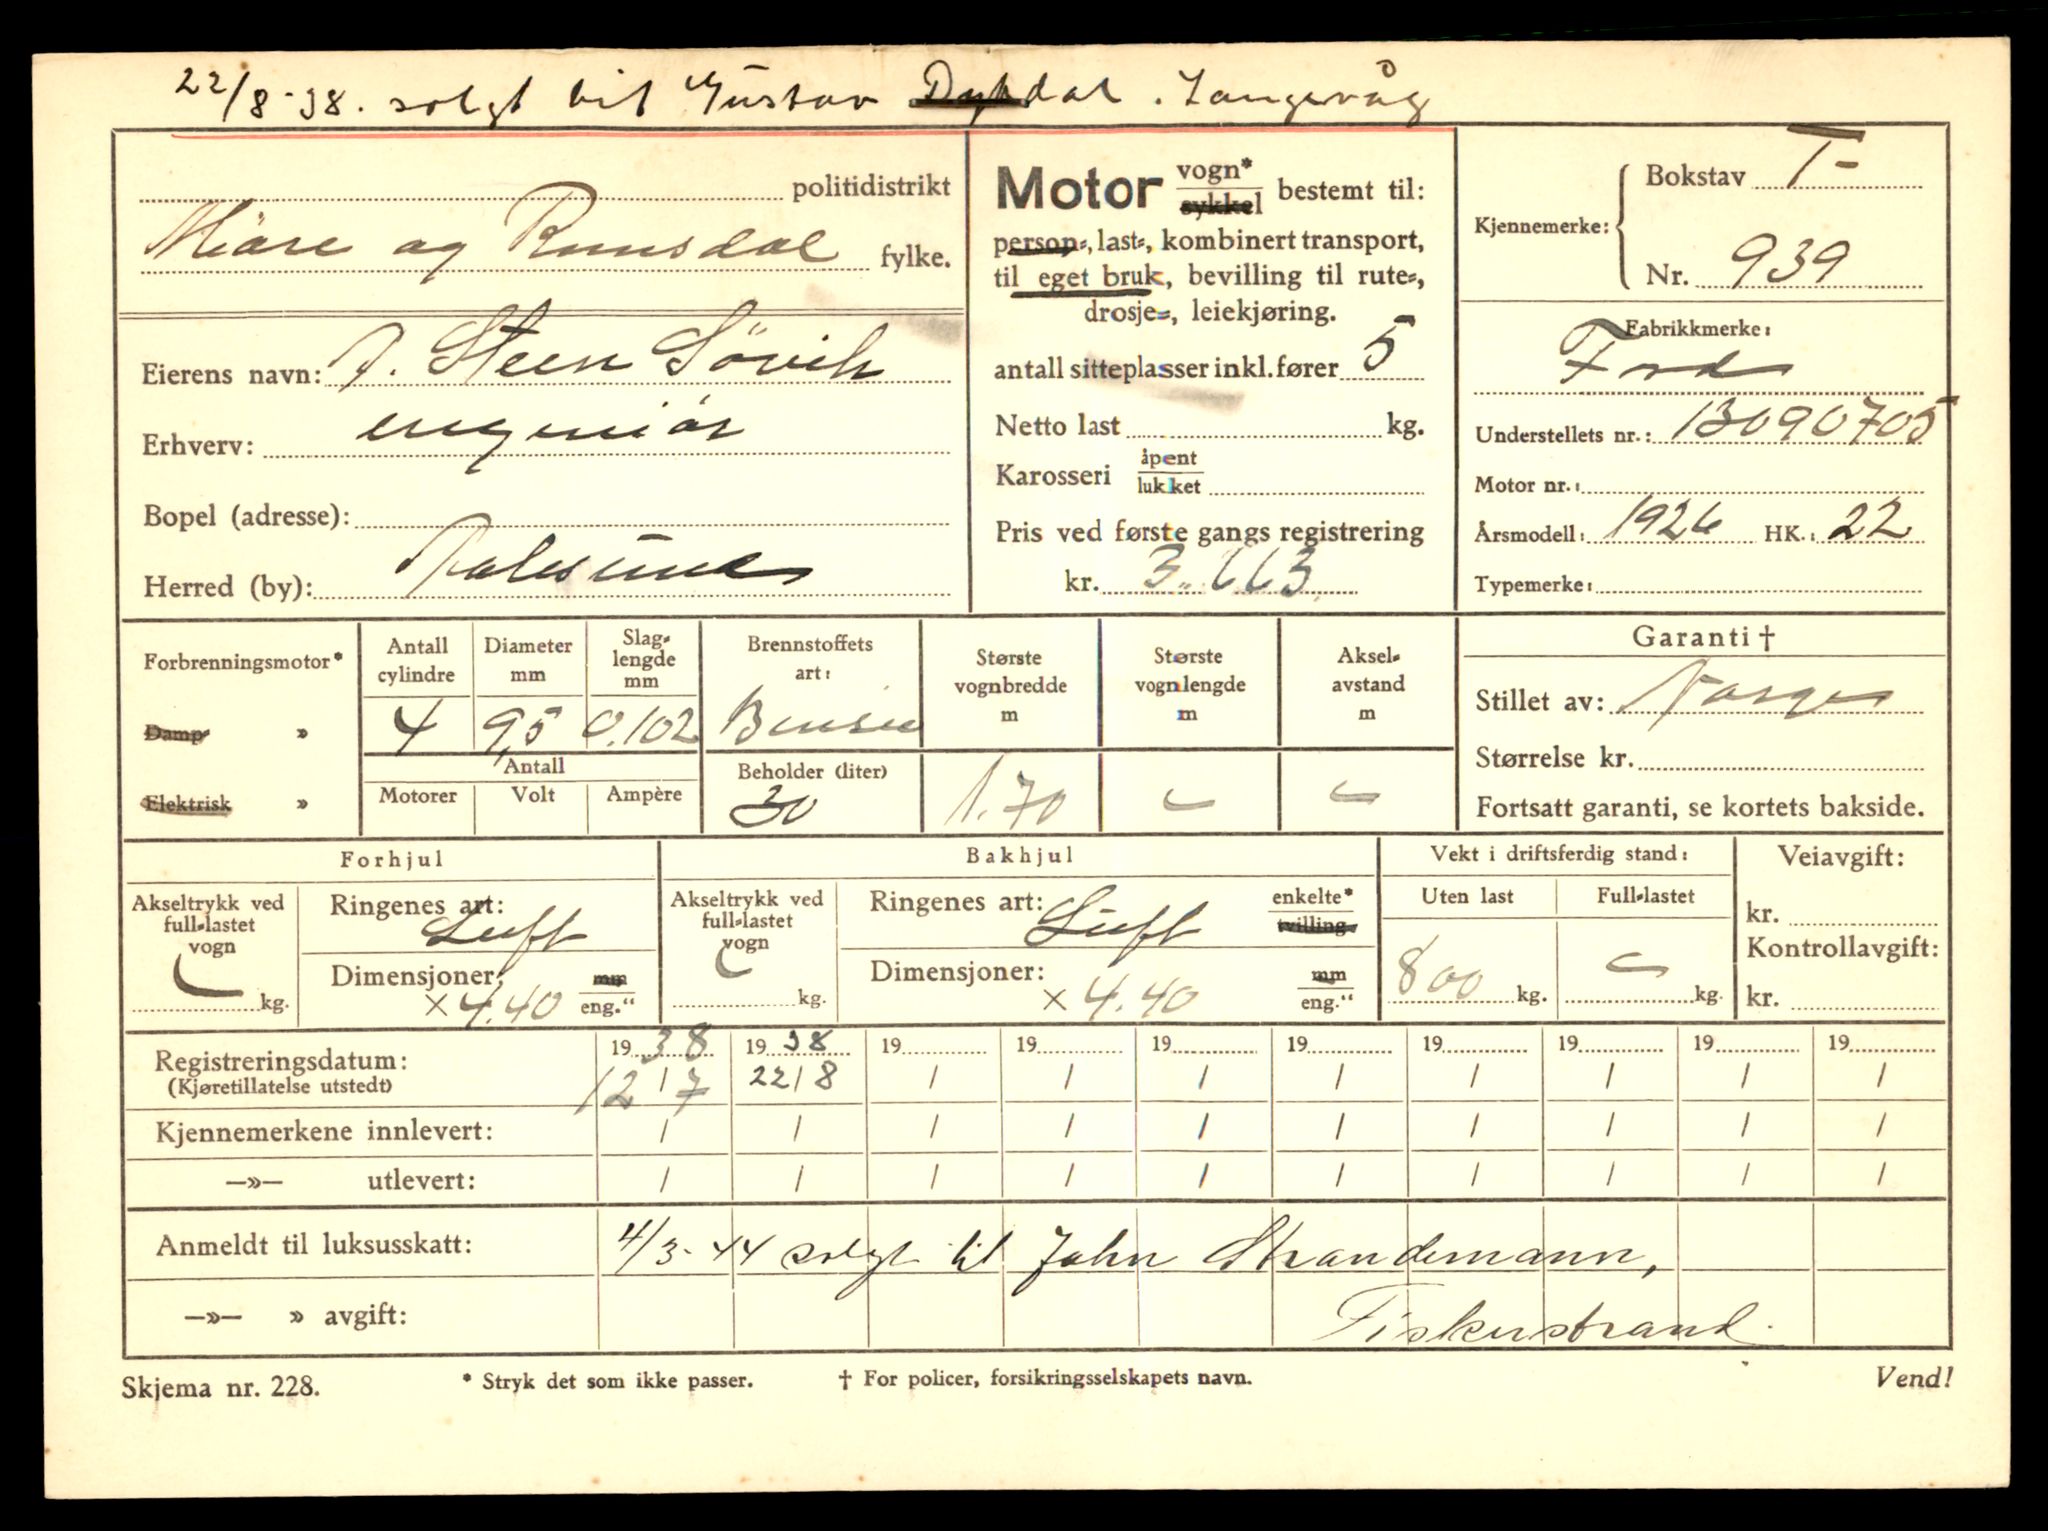 22/8-38. solgt til Gustav Dybdal. Langevåg
politidistrikt
Møre og Romsdal fylke.
Eierens navn: P. Steen Sövik
Erhverv: ingeniör
Bopel (adresse):
Herred (by): Aalesund
Motor vogn* sykkel bestemt til:
person-, last-, kombinert transport,
til eget bruk, bevilling til rute-,
drosje-, leiekjøring.
antall sitteplasser inkl. fører 5
Netto last kg.
Karosseri åpent lukket
Pris ved første gangs registrering
kr. 3.
Kjennemerke: Bokstav T-
Nr. 939
Fabrikkmerke:
Ford
Understellets nr.: 13090705
Motor nr.:
Årsmodell: 1926 HK.: 22
Typemerke:
Forbrenningsmotor*
Damp- »
Elektrisk »
Antall cylindre
4
Diameter mm
9,5
Slaglengde mm
0.102
Antall
Motorer Volt Ampère
Brennstoffets art:
Bensin
Beholder (liter)
30
Største vognbredde m
1.70
Største vognlengde m
Akselavstand m
Garanti †
Stillet av: Norge
Størrelse kr.
Fortsatt garanti, se kortets bakside.
Forhjul
Akseltrykk ved
full-lastet
vogn
kg.
Ringenes art: Luft
Dimensjoner: × 4.40 mm eng."
Bakhjul
Akseltrykk ved
full-lastet
vogn
kg.
Ringenes art: Luft enkelte* tvilling
Dimensjoner: × 4.40 mm eng."
Vekt i driftsferdig stand:
Uten last Full-lastet
800 kg. kg.
Veiavgift:
kr.
Kontrollavgift:
kr.
Registreringsdatum: 1938 1938 19 19 19 19 19 19 19 19
(Kjøretillatelse utstedt) 12/7 22/8 / / / / / / / /
Kjennemerkene innlevert: / / / / / / / / / /
—»— utlevert: / / / / / / / / / /
Anmeldt til luksusskatt: 4/3-44 solgt til John Strandemann,
—»— » avgift: Fiskerstrand.
Skjema nr. 228. * Stryk det som ikke passer. † For policer, forsikringsselskapets navn. Vend!